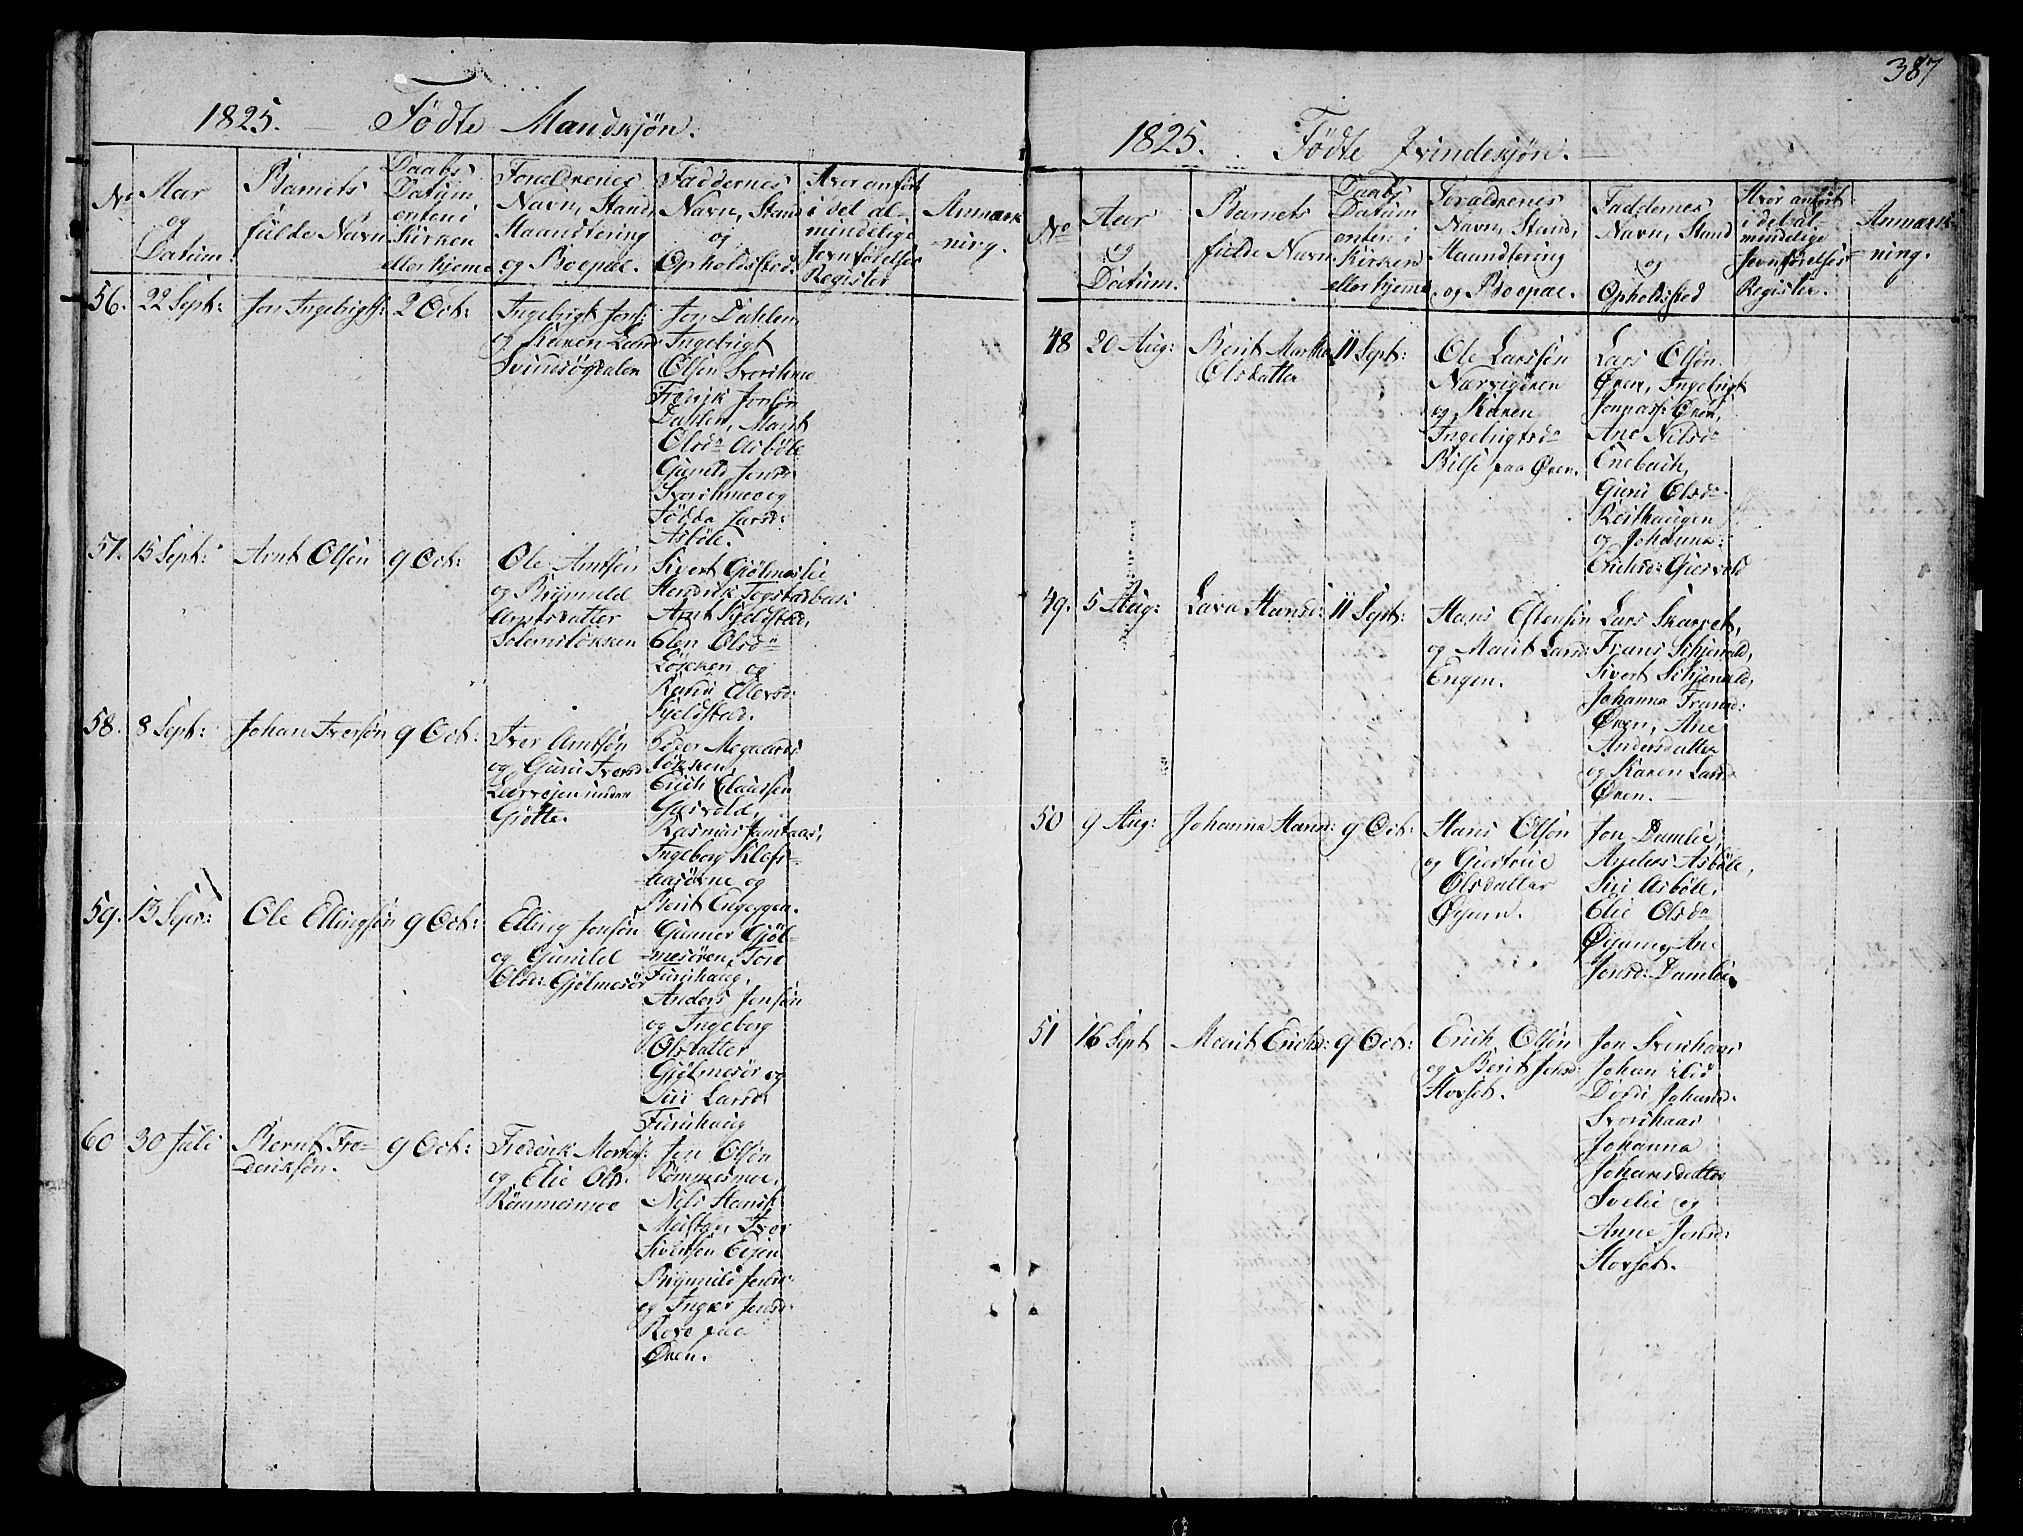 1825. — Fødte Mandkjøn.
No.
Aar
og
Datum.
Barnets
fulde Navn
Daabs
Datum
enten i
Kirken
eller hjeme
Forældrenes
Navn, Stand,
Haandtering
og Boepæl.
Faddernes
Navn, Stand
og
Opholdsted.
Hvor anført
i det al-
mindelige
Jevnførelses
Register
Anmærk
-ning.
56.
22 Sept:
Jon Ingebrigts:
2 Oct:
Ingebrigt Jons:
og Karen Lars
Jon Dahlen
Ingebrigt
Olsøn Svorihmo
Fredrik Jonsøn
Dahlen, Marit
Olsdr Asbøle
Gunild Jonsd
Svorihmo og
Larsd:
Asbøle.
57.
15 Sept:
Arnt Olsøn
9 Oct:
Ole Arntsøn
og Brynnild
Arntsdatter
Solemsløkken
Sivert Gjølmeslie
Hendrik
Arnt Fjeldstad,
Elen Olsdr
Løkken og
Randi
Fjeldstad.
58.
8 Sept:
Johan Iversøn
9 Oct:
Iver Arntsøn
og Guru Iversd
under
Gjøtte.
Peder Megaards
løkken,
Erich Claussen
Garvold,
Rasmus
Ingeborg
og
Berit Engeggen.
59.
13 Sept:
Ole Ellingsøn
9 Oct:
Elling Jonsøn
og Gunild
Olsd: Gjølmesør
Gunner Gjøl-
mesøren, Tore
Furuhaug,
Anders Jonsøn
og Ingeborg
Olsdatter
Gjølmesør og
Siri Larsd:
Furuhaug
60
30 Juli
Bernt Fre-
deriksøn.
9 Oct:
Frederik Mortens:
og Elie Olsd.
Rømmesmoe
Jon Olsøn
Rømmesmoe,
Nils Hans:
Iver
Sivertsøn
Brynnild Jonsd:
og Inger Jonsd:
paa
Øren.
387
1825. Fødte Qvindekjøn. —
No
Aar
og
Datum.
Barnets
fulde Navn
Daabs
Datum
enten i
Kirken
eller hjeme
Forældrenes
Navn, Stand,
Haandtering
og Boepæl.
Faddernes
Navn, Stand
og
Opholdsted
Hvor anført
i det al-
mindelige
Jevnførelses
Register.
Anmærk-
ning.
48
20 Aug:
Berit Martha
Olsdatter
11 Sept:
Ole Larssøn
Nærvigøren
og Karen
Ingebrigtsdr
paa Øren.
Lars Olsøn
Øren, Ingebrigt
Jonnass: Øren,
Ane Nilsdr
Enebach,
Guru Olsdr
Reithaugen
og Johanna
Erichsd: Gjersvold
49.
5 Aug:
Lava Hansd:
11 Sept:
Hans Estensøn
og Marit Larsd:
Engen.
Lars Skarvet,
Frans Schjevald,
Sivert Schjevald,
Johanna Fransd:
Øren, Ane
Andersdatter
og Karen Larsd
Øren. —
50
9 Aug:
Johanna Hansd:
9 Oct:
Hans Olsøn
og Giertrue
Olsdatter
Øyum.
Jon Damlie,
Anders Asbøle,
Siri Asbøle,
Elie Olsdr
Øyum, Ane
Jonsd: Damlie.
51
16 Sept
Marit Erichsd:
9 Oct:
Erich Olsøn
og Berit Jonsd:
Hovset.
Jon Svorihaar
Johan
Dordi Johansd:
Svorihaar
Johanna
Johansdatter
Svelie og
Anne Jonsd:
Hovset.